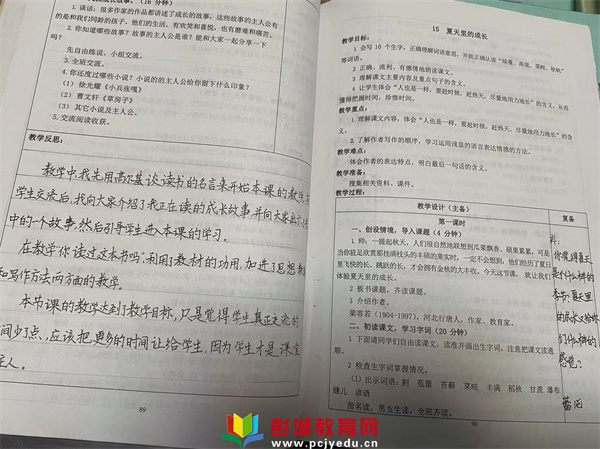 （16 分钟）
1. 谈话：很多作家的作品都讲述了成长的故事，这些故事的主人公有
的是和我们同龄的孩子，他们的生活，有欢笑和喜悦，也有磨难和痛苦。
2. 你知道哪些故事？故事的主人公是谁？能和大家一起分享一下
吗？
先自由练说，小组交流。
3. 全班交流。
4. 你还读过哪些小说？小说的的主人公给你留下什么印象？
（1）徐光耀《小兵张嘎》
（2）曹文轩《草房子》
（3）其它小说及主人公。
5. 交流阅读收获。
教学反思：
教学中我先用高尔基谈读书的名言来开始本课的教学，
学生交流后，我向大家介绍了我正在读的成长故事并向大家
中的一个故事，然后引导学生进入本课的学习。
在教学“你读过这本书吗”，利用了教材的功用，加进了思想教
和写作方法两方面的教学。
本节课的教学达到了教学目标，只是觉得学生真正交流的
间少了点，应该把更多的时间让给学生，因为学生才是课堂
主人。
89
15 夏天里的成长
教学目标：
1 会写 10 个字，正确理解词语意思，并能正确认读“绿蔓、高粱、菜畦、铁轨”
等词语。
2 正确、流利、有感情地朗读课文。
3 理解课文主要内容及重点句子的含义。
4 让学生体会“人也是一样，要赶时候，赶热天，尽量地用力地长”的含义，从而
懂得把握时间，珍惜时间。
教学重点：
1. 理解课文内容，体会“人也是一样，要赶时候，赶热天，尽量地用力地长”的含
义。
2. 了解作者写作的顺序，学习运用浅显的语言表达情感的方法。
教学难点：
体会作者的表达特点，明白最后一句话的含义。
教学准备：
搜集相关资料、课件。
教学过程：
教学设计（主备） 复备
第一课时
一、创设情境，导入课题（4 分钟）
1 师：一提起秋天，人们很自然地联想到瓜果飘香、硕果累累，可是
当你驻足欣赏那挂满枝头的丰硕的果实时，一定不会想到，他们经历了夏日
里飞快的长、跳跃的长，才会拥有金秋的大丰收。今天这节课，就让我们
体验夏天里的成长。
2 板书课题，齐读课题。
3 介绍作者。
梁容若（1904-1997），河北行唐人，作家、教育家。
二、初读课文，学习字词（20 分钟）
1 下面请同学们自由读课文，读准并画出生字词，注意把课文读通
顺。
2 检查生字词掌握情况。
（1）出示词语：割 苞蕾 苔藓 菜畦 丰满 稻秧 甘蔗 瀑布
缝儿 谚语
指名读、男女生读、全班齐读。
你觉得夏天
是个什么样的
季节？夏天里
的成长又给你
们什么样的
感觉？
90
彭城教育网
www.pcjyedu.cn